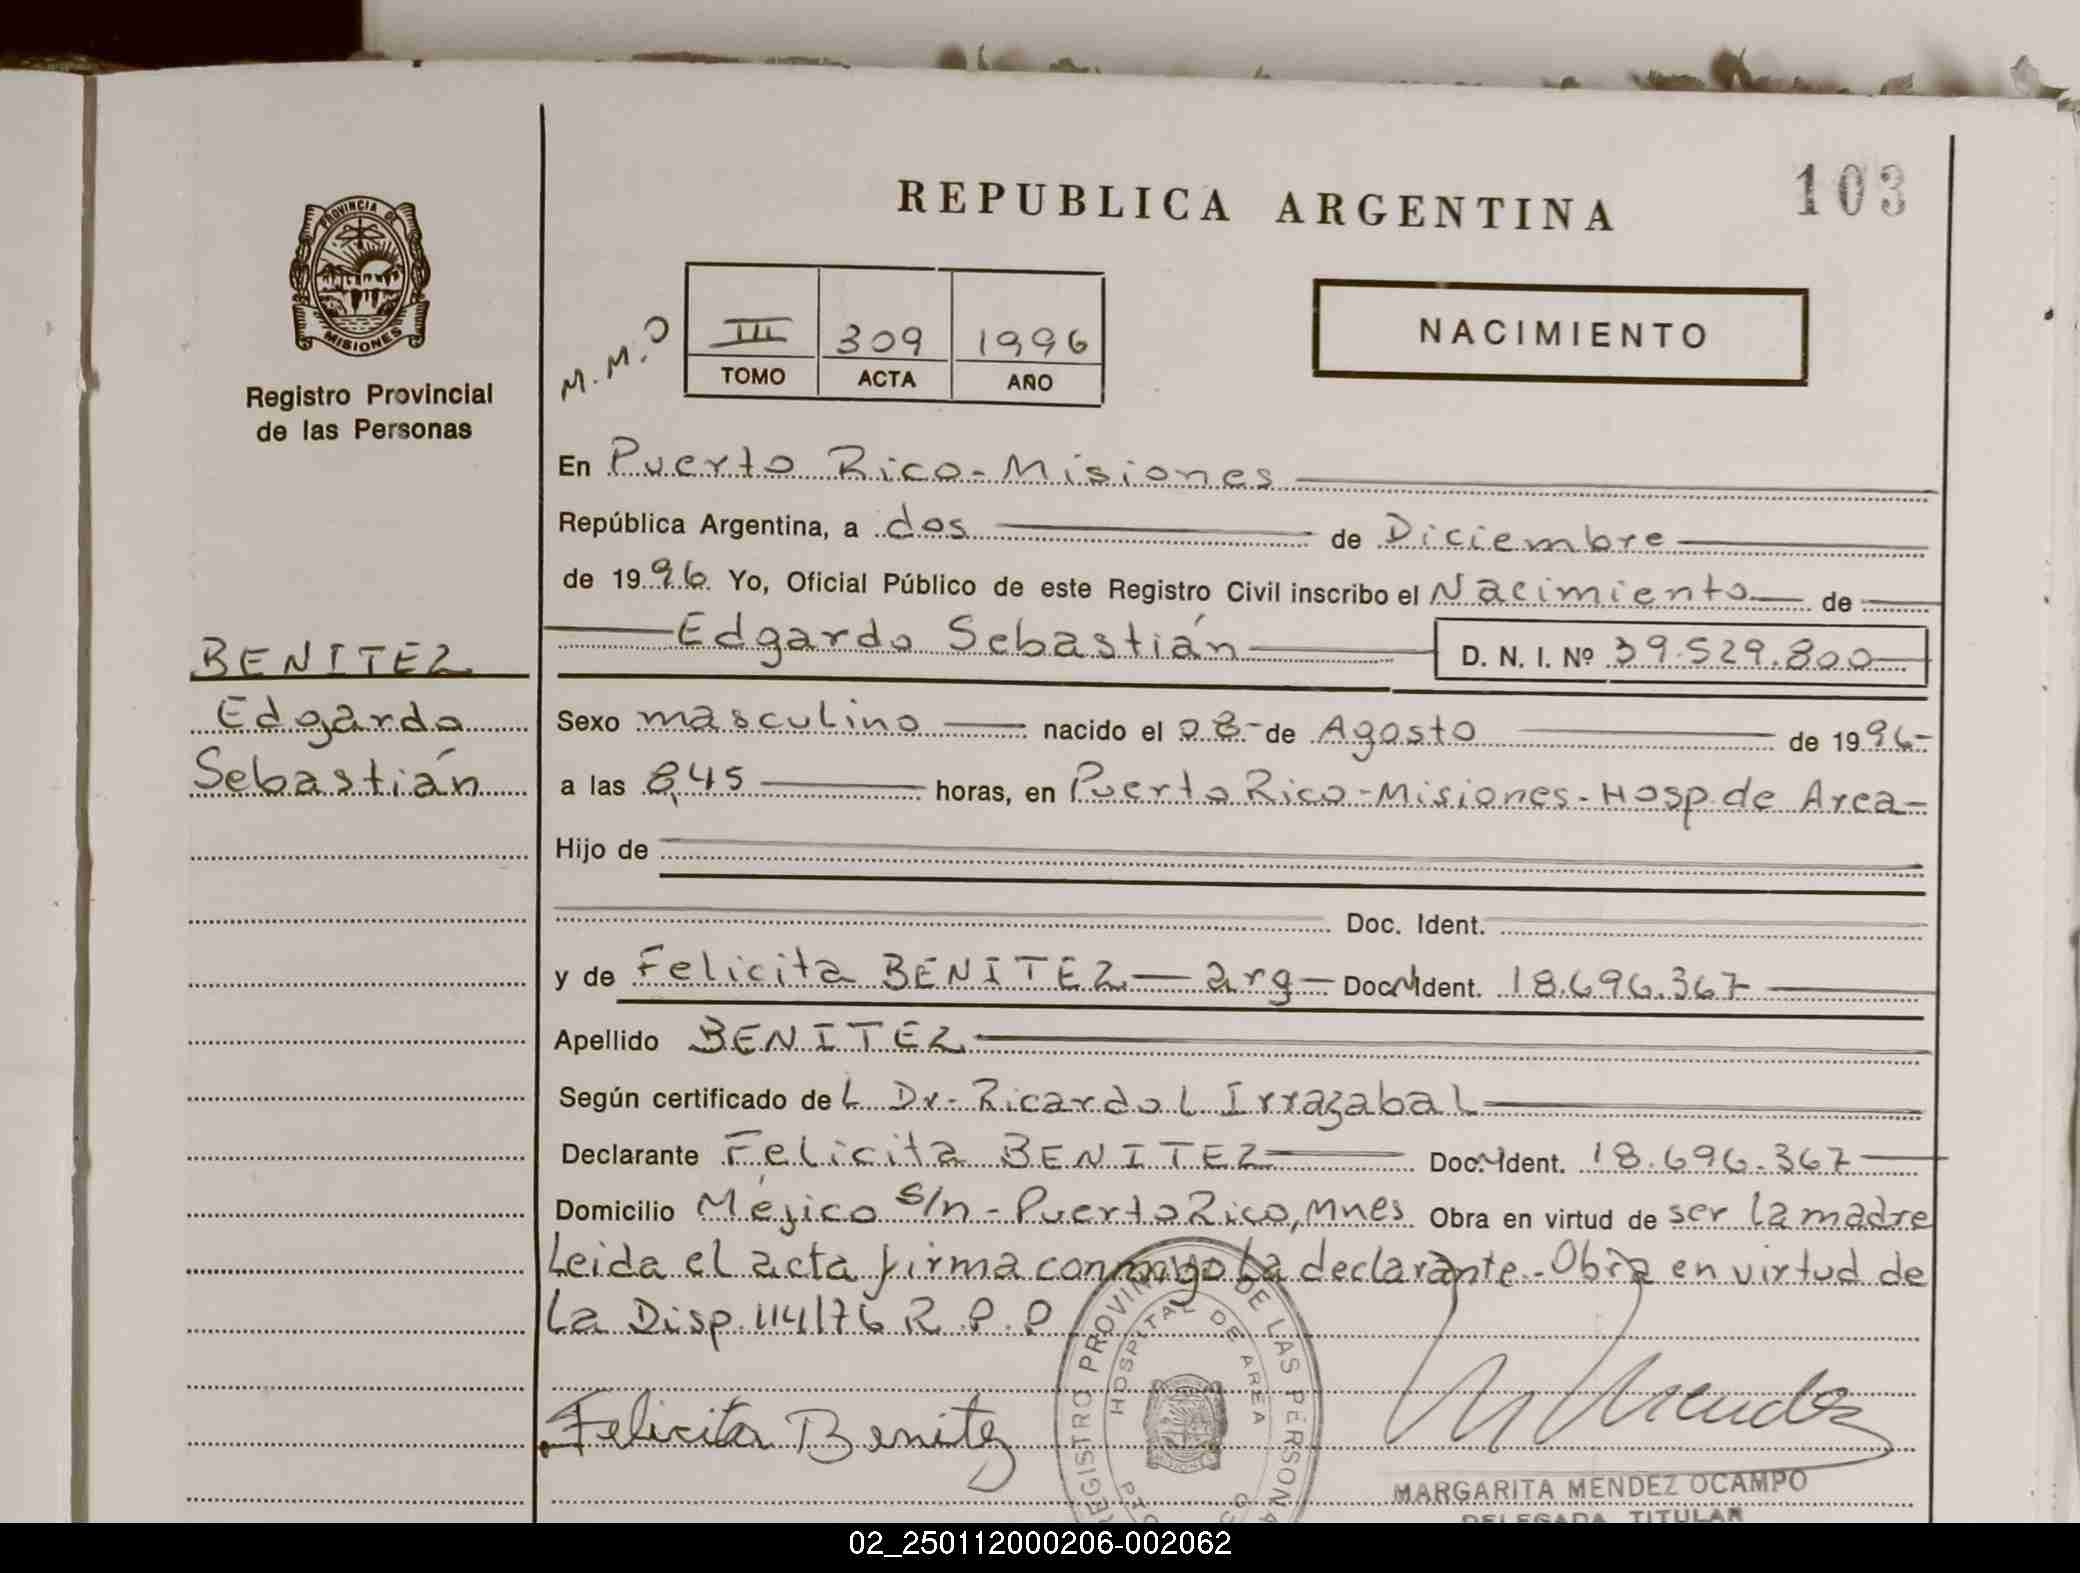 REPUBLICA ARGENTINA
103
PROVINCIA DE
MISIONES
Registro Provincial
de las Personas
M.M.O
III 309 1996
TOMO ACTA AÑO
NACIMIENTO
En Puerto Rico-Misiones
República Argentina, a dos de Diciembre
de 1996 Yo, Oficial Público de este Registro Civil inscribo el Nacimiento de
Edgardo Sebastián D. N. I. Nº 39.529.800
BENITEZ
Edgardo
Sebastián
Sexo masculino nacido el 08- de Agosto de 1996-
a las 8,45 horas, en Puerto Rico-Misiones-Hosp.de Area-
Hijo de
Doc. Ident.
y de Felicita BENITEZ- arg- Doc.N Ident. 18.696.367
Apellido BENITEZ
Según certificado de L Dr. Ricardo L Irrazabal
Declarante Felicita BENITEZ Doc.N Ident. 18.696.367
Domicilio Méjico s/n-Puerto Rico, Mnes Obra en virtud de ser la madre
Leida el acta firma conmigo la declarante-Obra en virtud de
La Disp.114/76 R.P.P
Felicita Benitez
REGISTRO PROVINCIAL DE LAS PERSONAS
HOSPITAL DE AREA
MISIONES
M Mendez
MARGARITA MENDEZ OCAMPO
DELEGADA TITULAR
02_250112000206-002062